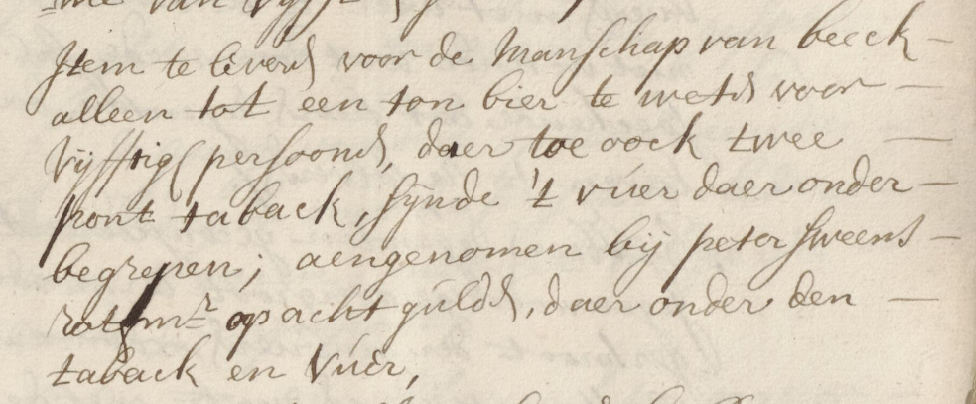 Item te leverd voor de Manschap van beeck -
alleen tot een ton bier te wetd voor -
vijfftig persoond, daer toe oock twee -
pont taback, sijnde 't vúer daer onder -
begrepen; aengenomen bij peter sweens -
rotmr op acht guldd, daer onder den -
taback en vúer,